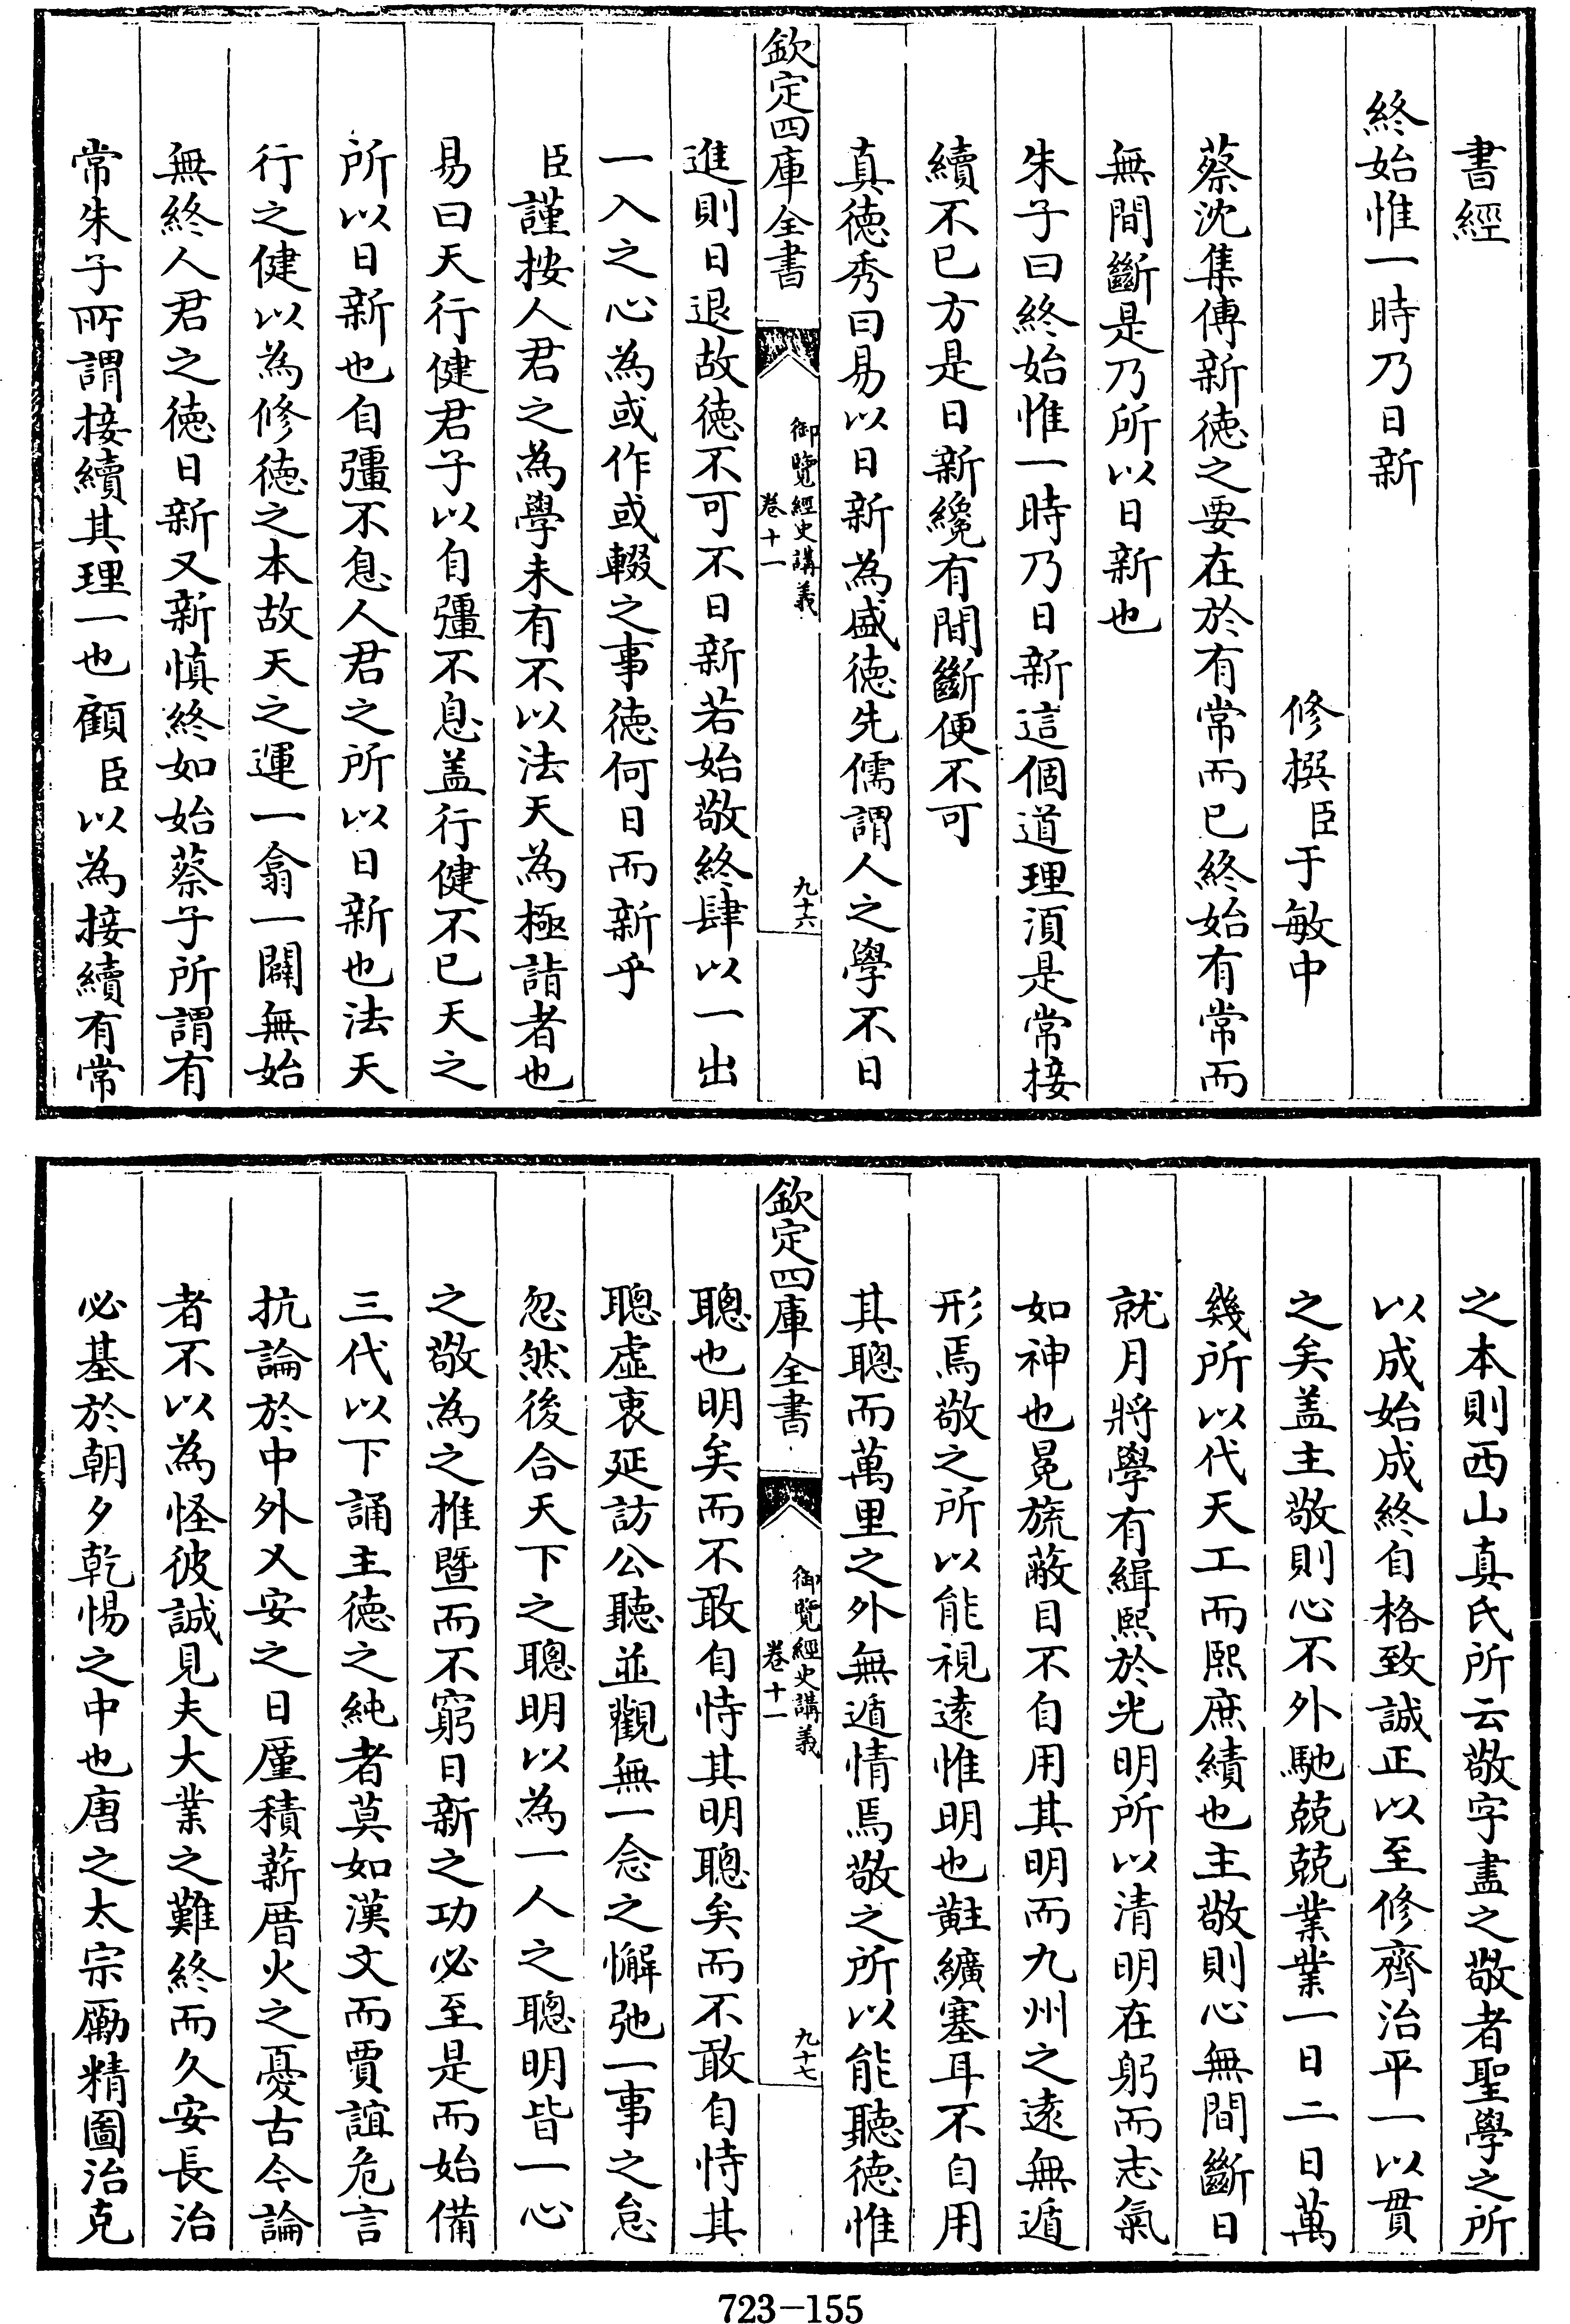 書經
終始惟一時乃日新
修撰臣于敏中
蔡沈集傳新徳之要在於有常而已終始有常而
無間斷是乃所以日新也
朱子曰終始惟一時乃日新這個道理湏是常接
續不已方是日新纔有間斷便不可
真徳秀曰易以日新為盛徳先儒謂人之學不日
欽定四庫全書
御覽經史講義
卷十一
九十六
進則日退故徳不可不日新若始敬終肆以一出
一入之心為或作或輟之事徳何日而新乎
臣謹按人君之為學未有不以法天為極詣者也
易曰天行健君子以自彊不息盖行健不已天之
所以日新也自彊不息人君之所以日新也法天
行之健以為修徳之本故天之運一翕一闢無始
無終人君之徳日新又新慎終如始蔡子所謂有
常朱子所謂接續其理一也顧臣以為接續有常
之本則西山真氏所云敬字盡之敬者聖學之所
以成始成終自格致誠正以至修齊治平一以貫
之矣盖主敬則心不外馳兢兢業業一日二日萬
幾所以代天工而熙庶績也主敬則心無間斷日
就月將學有緝熙於光明所以清明在躬而志氣
如神也冕旒蔽目不自用其明而九州之遠無遁
形焉敬之所以能視遠惟明也黈纊塞耳不自用
其聰而萬里之外無遁情焉敬之所以能聽徳惟
欽定四庫全書
御覽經史講義
卷十一
九十七
聰也明矣而不敢自恃其明聰矣而不敢自恃其
聰虛衷延訪公聽並觀無一念之懈弛一事之怠
忽然後合天下之聰明以為一人之聰明皆一心
之敬為之推暨而不窮日新之功必至是而始備
三代以下誦主徳之純者莫如漢文而賈誼危言
抗論於中外乂安之日厪積薪厝火之憂古今論
者不以為怪彼誠見夫大業之難終而久安長治
必基於朝夕乾惕之中也唐之太宗勵精圖治克
723-155